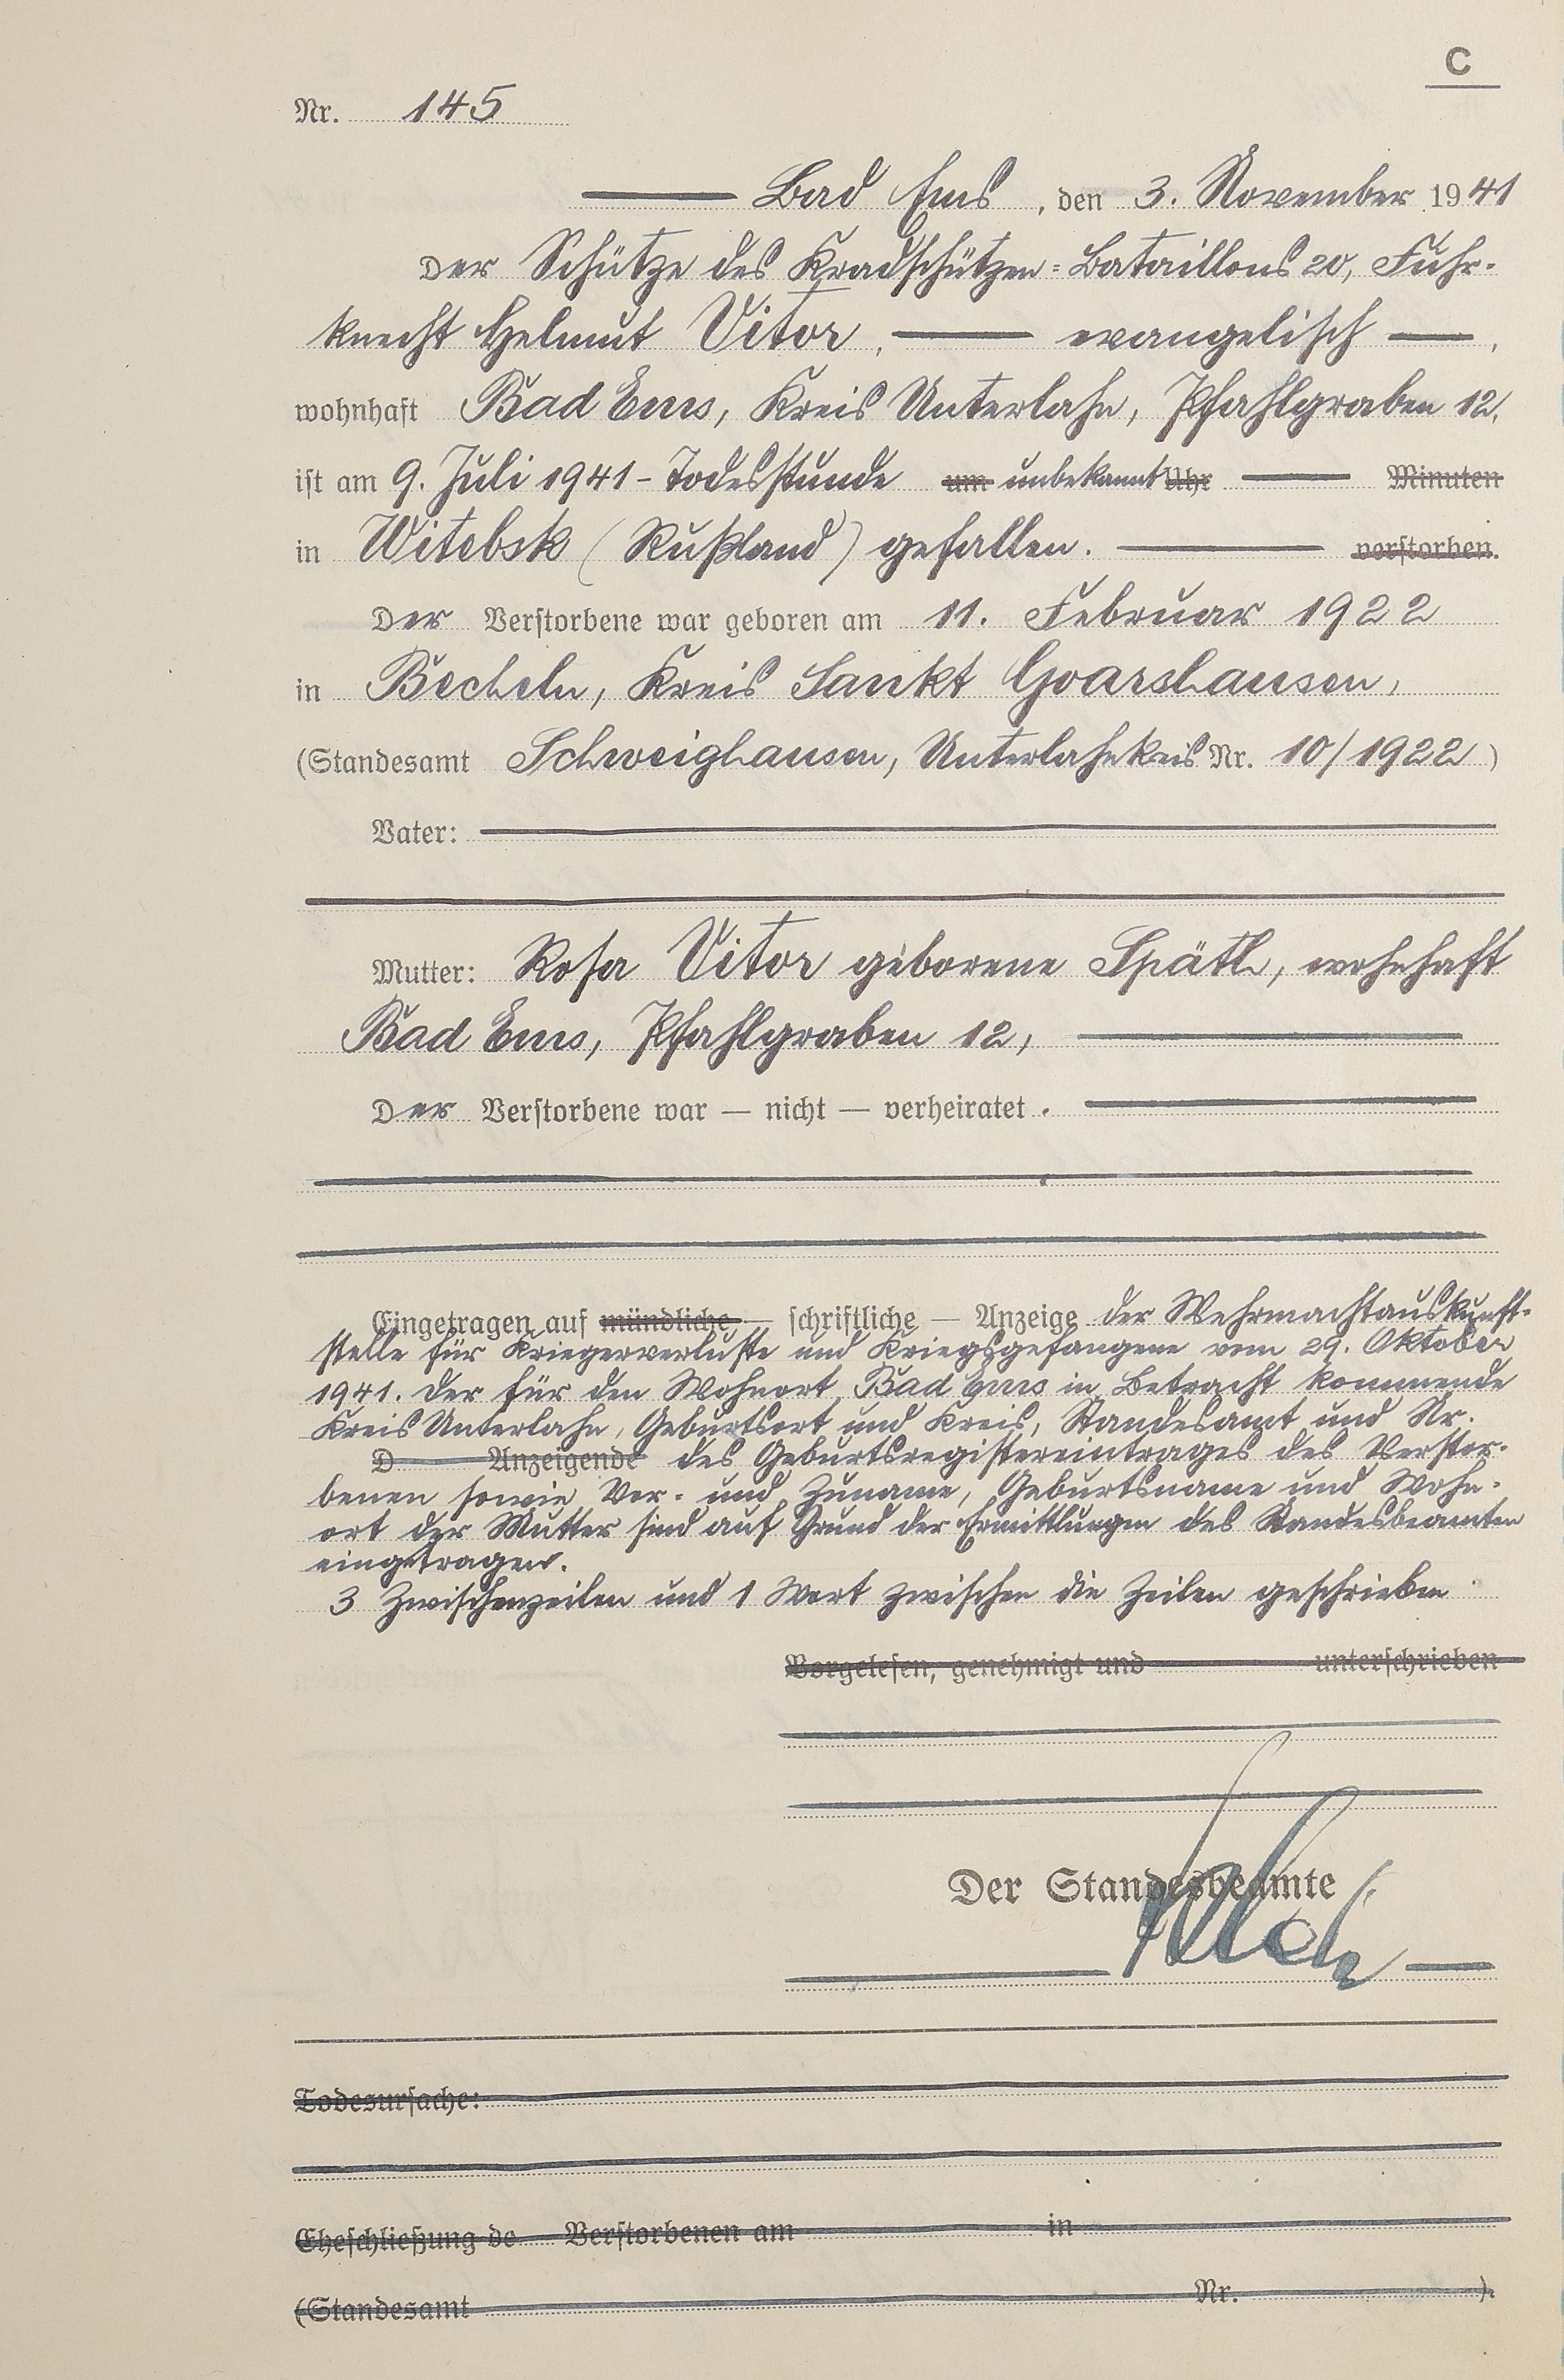 C
Nr. 145
Bad Ems, den 3. November 1941
Der Schütze des Kradschützen=Bataillons 20, Fuhr-
knecht Helmut Vitor, evangelisch,
wohnhaft Bad Ems, Kreis Unterlahn, Pfahlgraben 12,
ist am 9. Juli 1941 - Todesstunde um unbekannt Uhr Minuten
in Witebsk (Rußland) gefallen. verstorben.
Der Verstorbene war geboren am 11. Februar 1922
in Becheln, Kreis Sankt Goarshausen,
(Standesamt Schweighausen, Unterlahnkreis Nr. 10/1922)
Vater:
Mutter: Rosa Vitor geborene Späth, wohnhaft
Bad Ems, Pfahlgraben 12,
Der Verstorbene war — nicht — verheiratet.
Eingetragen auf mündliche — schriftliche — Anzeige der Wehrmachtauskunft-
stelle für Kriegerverluste und Kriegsgefangene vom 29. Oktober
1941. Der für den Wohnort Bad Ems in Betracht kommende
Kreis Unterlahn, Geburtsort und Kreis, Standesamt und Nr.
D Anzeigende des Geburtsregistereintrages des Verstor-
benen sowie Vor- und Zuname, Geburtsname und Wohn-
ort der Mutter sind auf Grund der Ermittlungen des Standesbeamten
eingetragen.
3 Zwischenzeilen und 1 Wort zwischen die Zeilen geschrieben
Vorgelesen, genehmigt und unterschrieben
Der Standesbeamte
Todesursache:
Eheschließung de Verstorbenen am in
(Standesamt Nr. ).